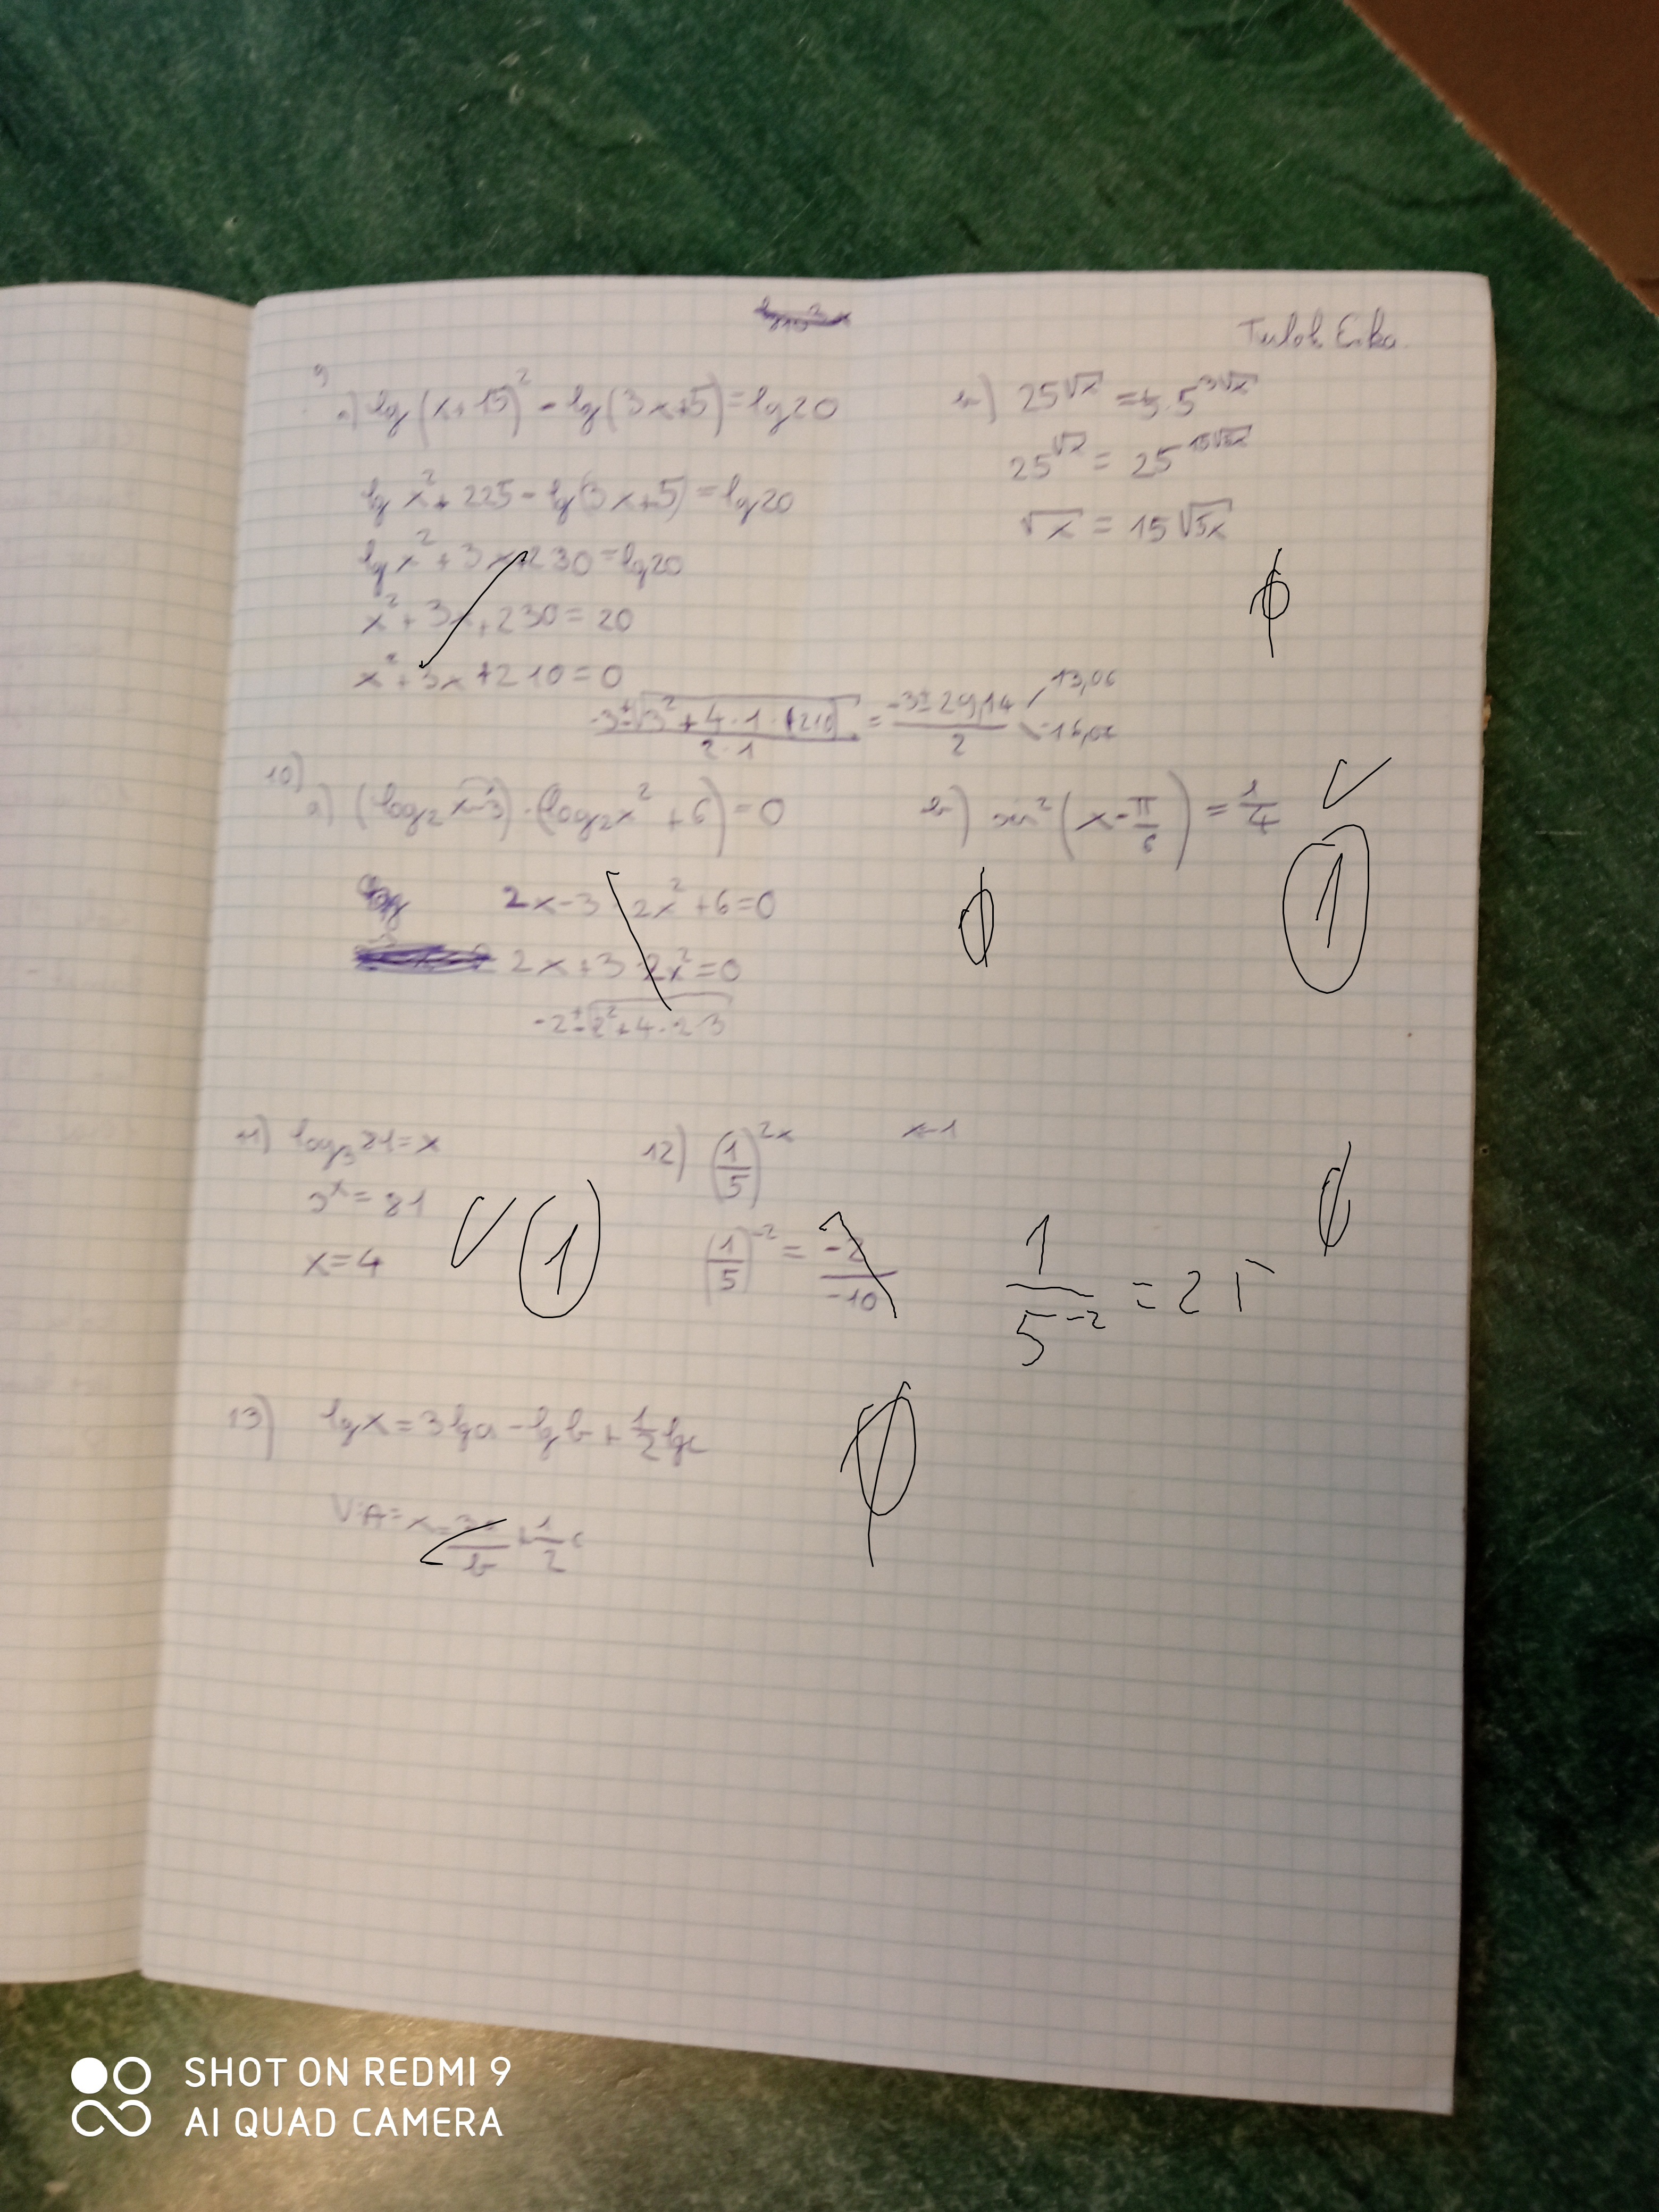 9
a) lg(x+15)² - lg(3x+5) = lg20
lg x² + 225 - lg(3x+5) = lg20
lg x² + 3x + 230 = lg20
x² + 3x + 230 = 20
x² + 3x + 210 = 0
= (-3 ± 29,14)/2 13,06
b) 25^√x = 5·5^(3√x)
25^√x = 25^(15√5x)
√x = 15√5x
10)
a) (log₂x-3)·(log₂x²+6) = 0
2x-3·2x²+6=0
2x+3·2x²=0
-2±√2²+4·2·3
b) sin²(x-π/6) = 1/4
1
11) log₃81=x
3ˣ=81
x=4
1
12) (1/5)^2x x-1
(1/5)^-2 = -2/-10
1/5^-2 = 25
13) lgx=3lga-lgb+1/2lgc
x=3a/b+1/2c
SHOT ON REDMI 9
AI QUAD CAMERA